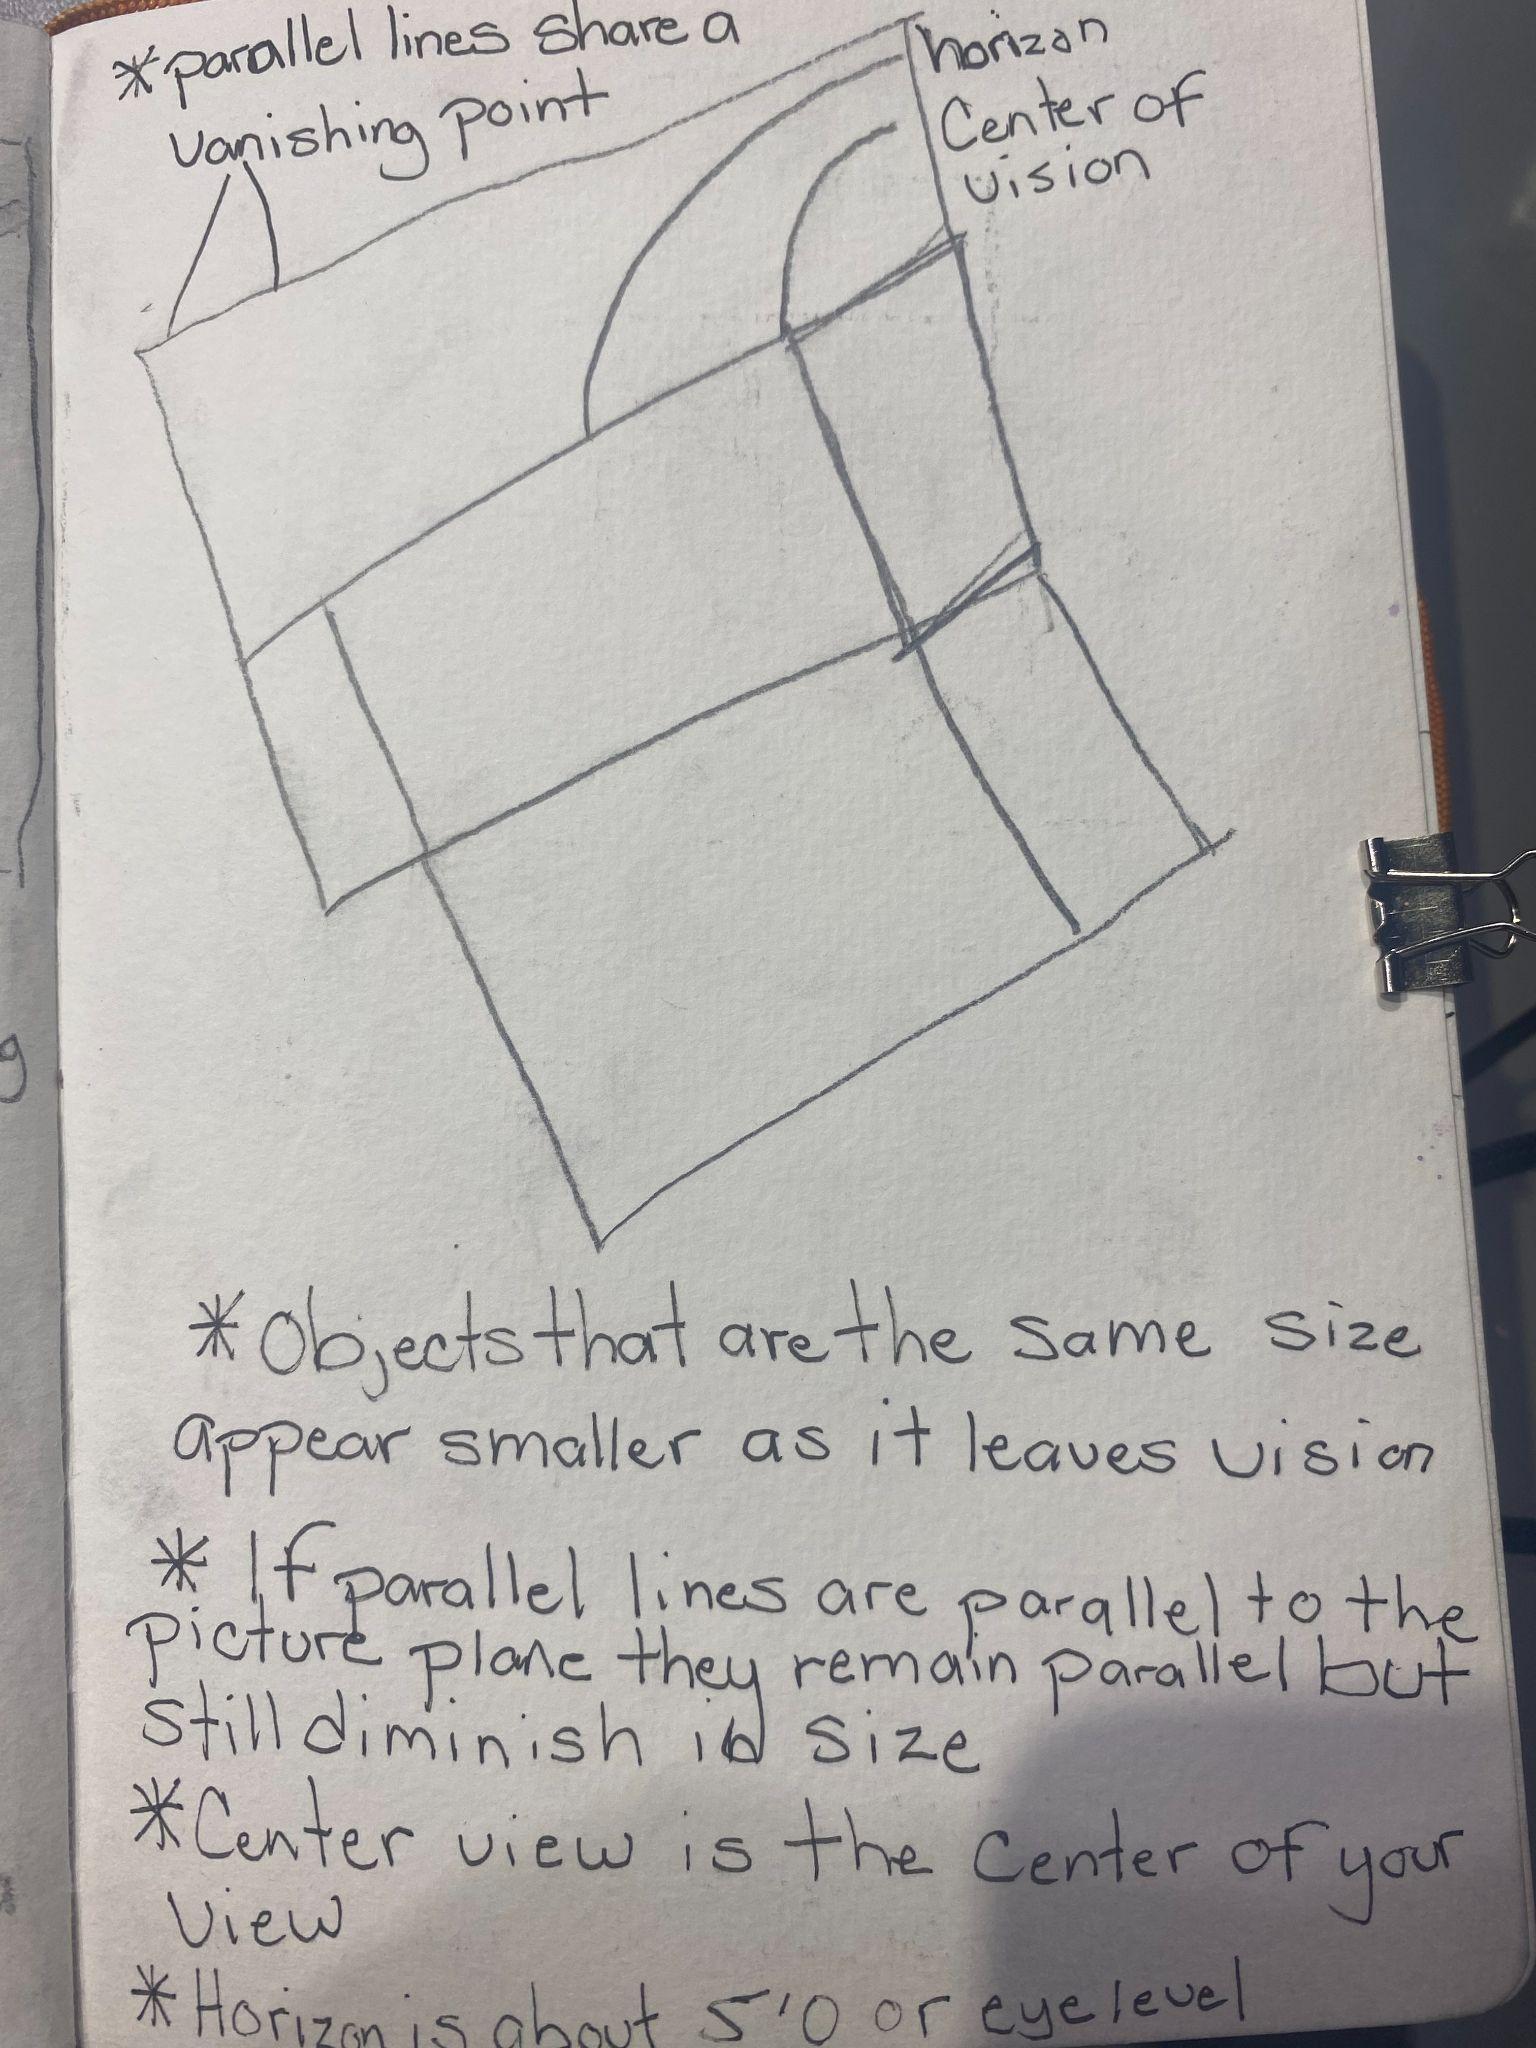 *parallel lines share a
vanishing point
horizon
Center of
vision
g
*Objects that are the same size
appear smaller as it leaves vision
* If parallel lines are parallel to the
picture plane they remain parallel but
still diminish in size
*Center view is the center of your
view
*Horizon is about 5'0 or eye level